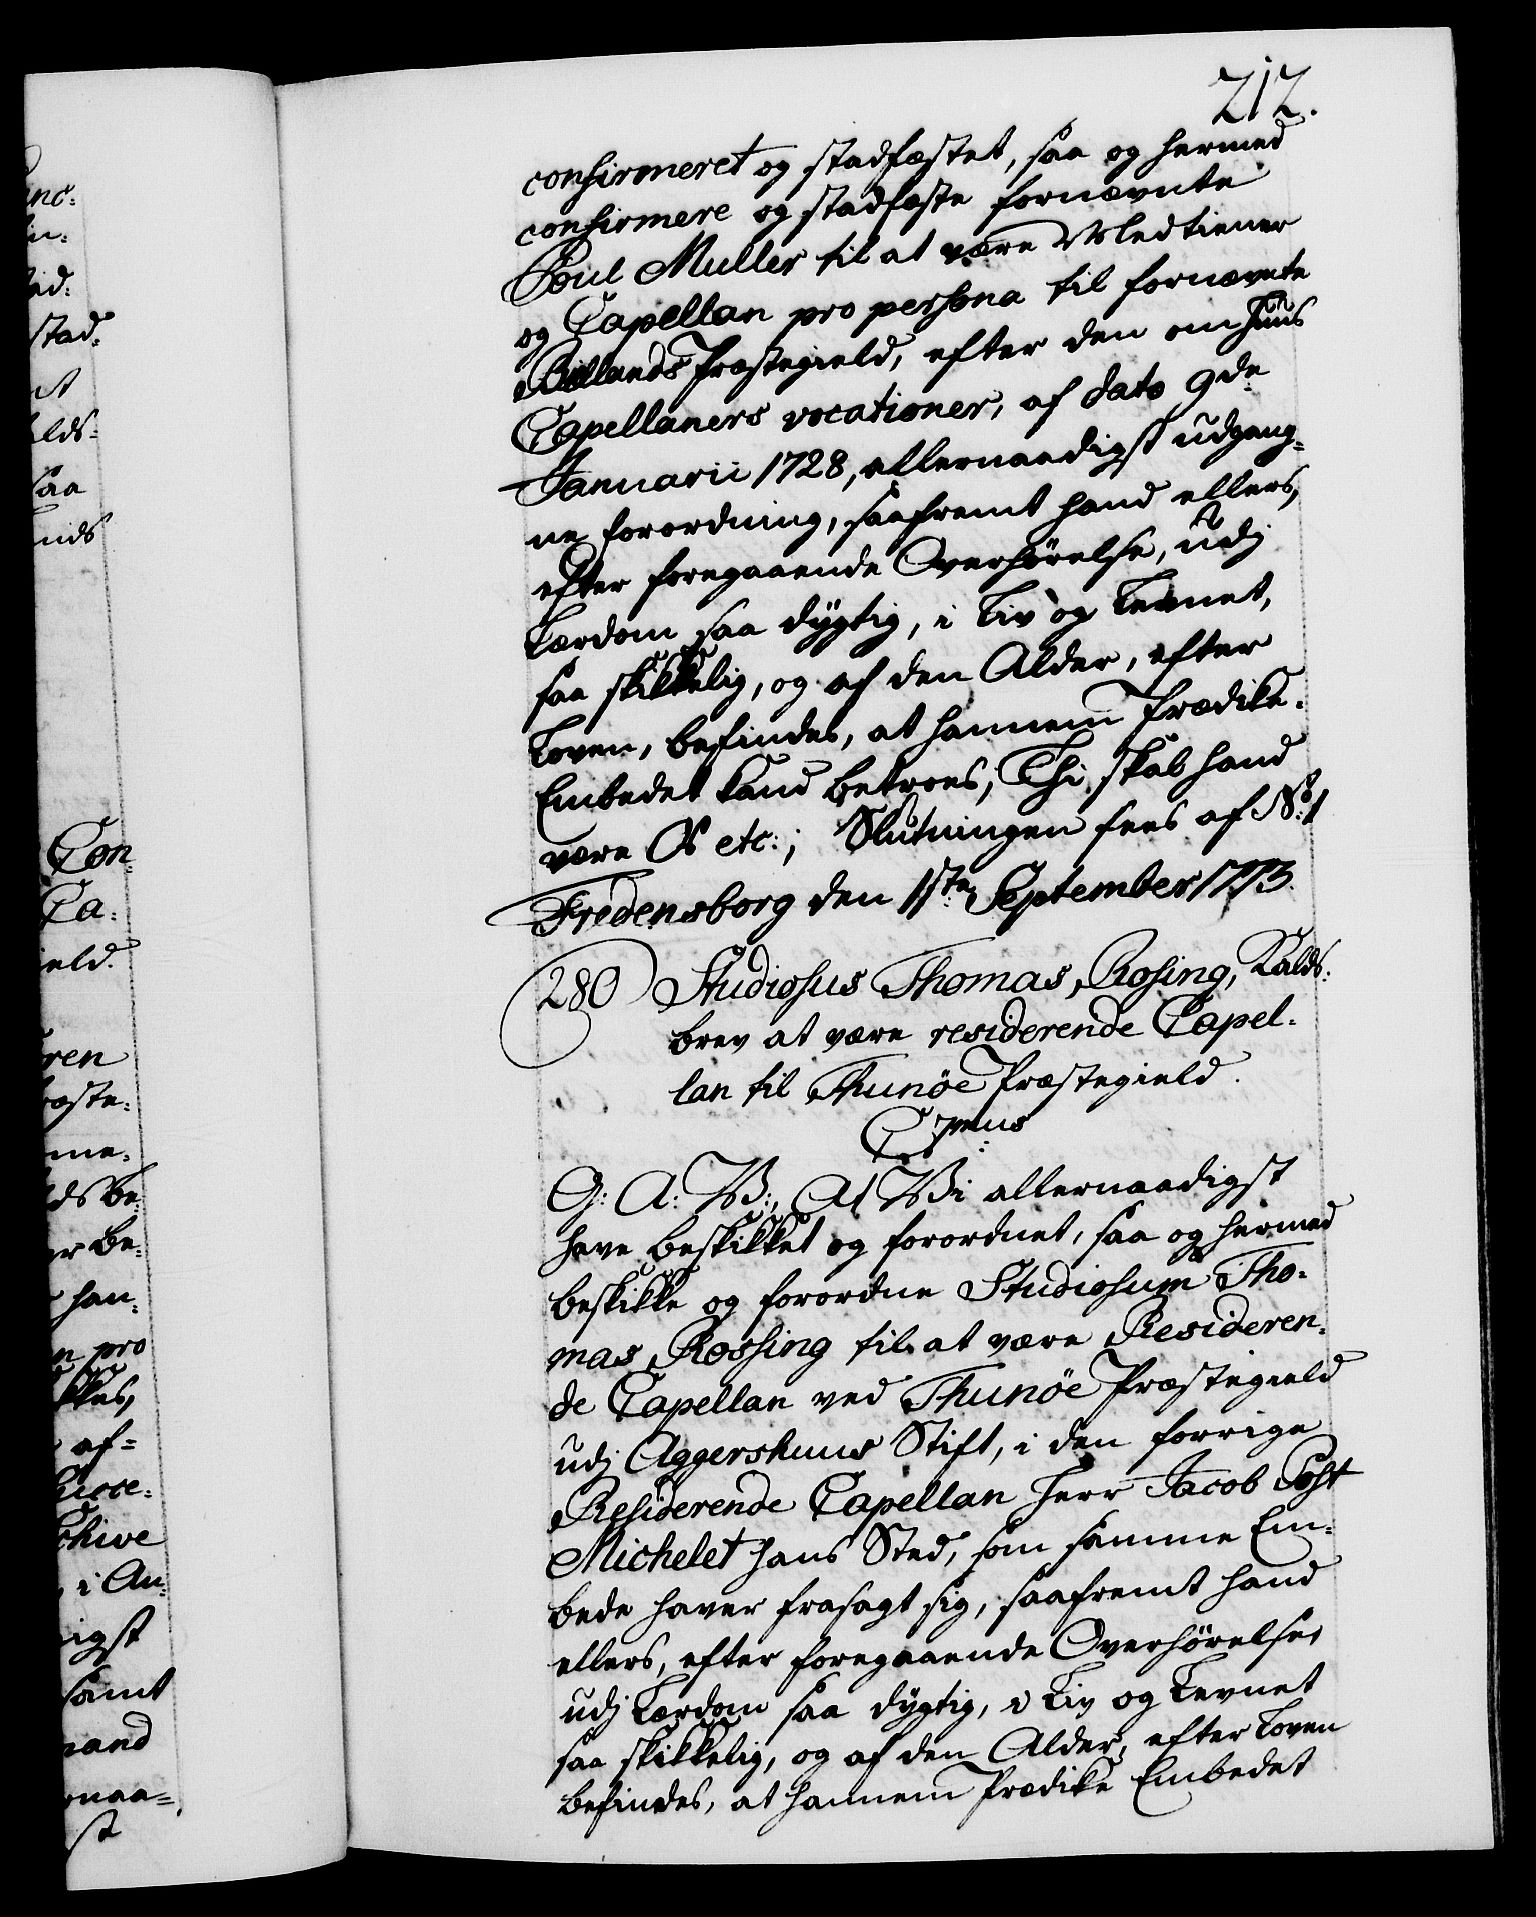 212.
confirmeret og stadfæstet, saa og hermed
confirmere og stadfæste fornævnte
Poul Muller til at være Medtiener
og Capellan pro persona til fornævnte
Præstegield, efter den om Huus
Capellaners vocationer, af dato 9de
Januarii 1728, allernaadigst udgang-
ne forordning, saafremt hand ellers,
efter foregaaende Overhørelse, udj
Lærdom saa dygtig, i Liv og Levnet,
saa skikkelig, og af den Alder, efter
Loven, befindes, at hannem Prædike-
Embedet kand betroes; Thi skal hand
være Os etc:; Slutningen sees af No: 1
Fredensborg den 11ste September 1773.
280 Studiosus Thomas Rosing, Kalds-
brev at være residerende Capel-
lan til Thunøe Præstegield.
G: A: W:, At Wi allernaadigst
have beskikket og forordnet, saa og hermed
beskikke og forordne Studiosum Tho-
mas Rossing til at være Resideren-
de Capellan ved Thunøe Præstegield
udj Aggershuus Stift, i den forrige
Residerende Capellan Herr Jacob Post
Michelet hans Sted, som samme Em-
bede haver frasagt sig, saafremt hand
ellers, efter foregaaende Overhørelse,
udj Lærdom saa dygtig, i Liv og Levnet
saa skikkelig, og af den Alder, efter Loven
befindes, at hannem Prædike Embedet
stad-
saa
Con-
Ca-
ield.
han-
pro
af-
i An-
samt